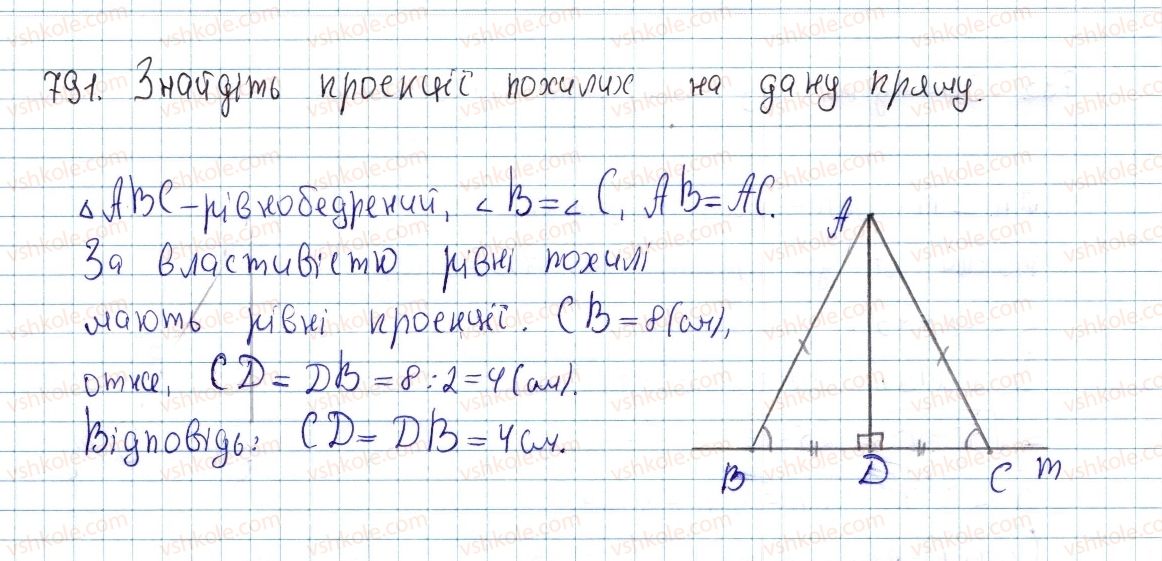 791. Знайдіть проекції похилих на дану пряму.
△ABC – рівнобедрений, ∠B = ∠C, AB = AC.
За властивістю рівні похилі
мають рівні проекції. CB = 8 (см),
отже, CD = DB = 8 : 2 = 4 (см).
Відповідь: CD = DB = 4 см.
A
B D C m
vshkole.com